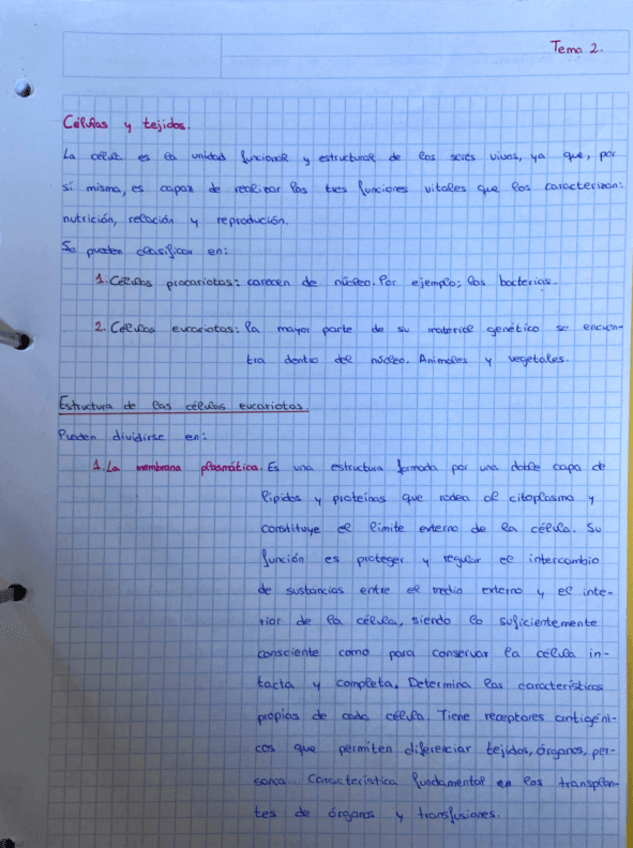 Tema 2.
Células y tejidos.
La célula es la unidad funcional y estructural de los seres vivos, ya que, por
sí misma, es capaz de realizar las tres funciones vitales que los caracterizan:
nutrición, relación y reprodución.
Se pueden clasificar en:
1. Células procariotas: carecen de núcleo. Por ejemplo: las bacterias.
2. Células eucariotas: la mayor parte de su material genético se encuen-
tra dentro del núcleo. Animales y vegetales.
Estructura de las células eucariotas
Pueden dividirse en:
1. La membrana plasmática. Es una estructura formada por una doble capa de
lípidos y proteínas que rodea el citoplasma y
constituye el límite externo de la célula. Su
función es proteger y regular el intercambio
de sustancias entre el medio externo y el inte-
rior de la célula, siendo lo suficientemente
consciente como para conservar la célula in-
tacta y completa. Determina las características
propias de cada célula. Tiene receptores antigéni-
cos que permiten diferenciar tejidos, órganos, per-
sonas. Característica fundamental en los transplan-
tes de órganos y transfusiones.